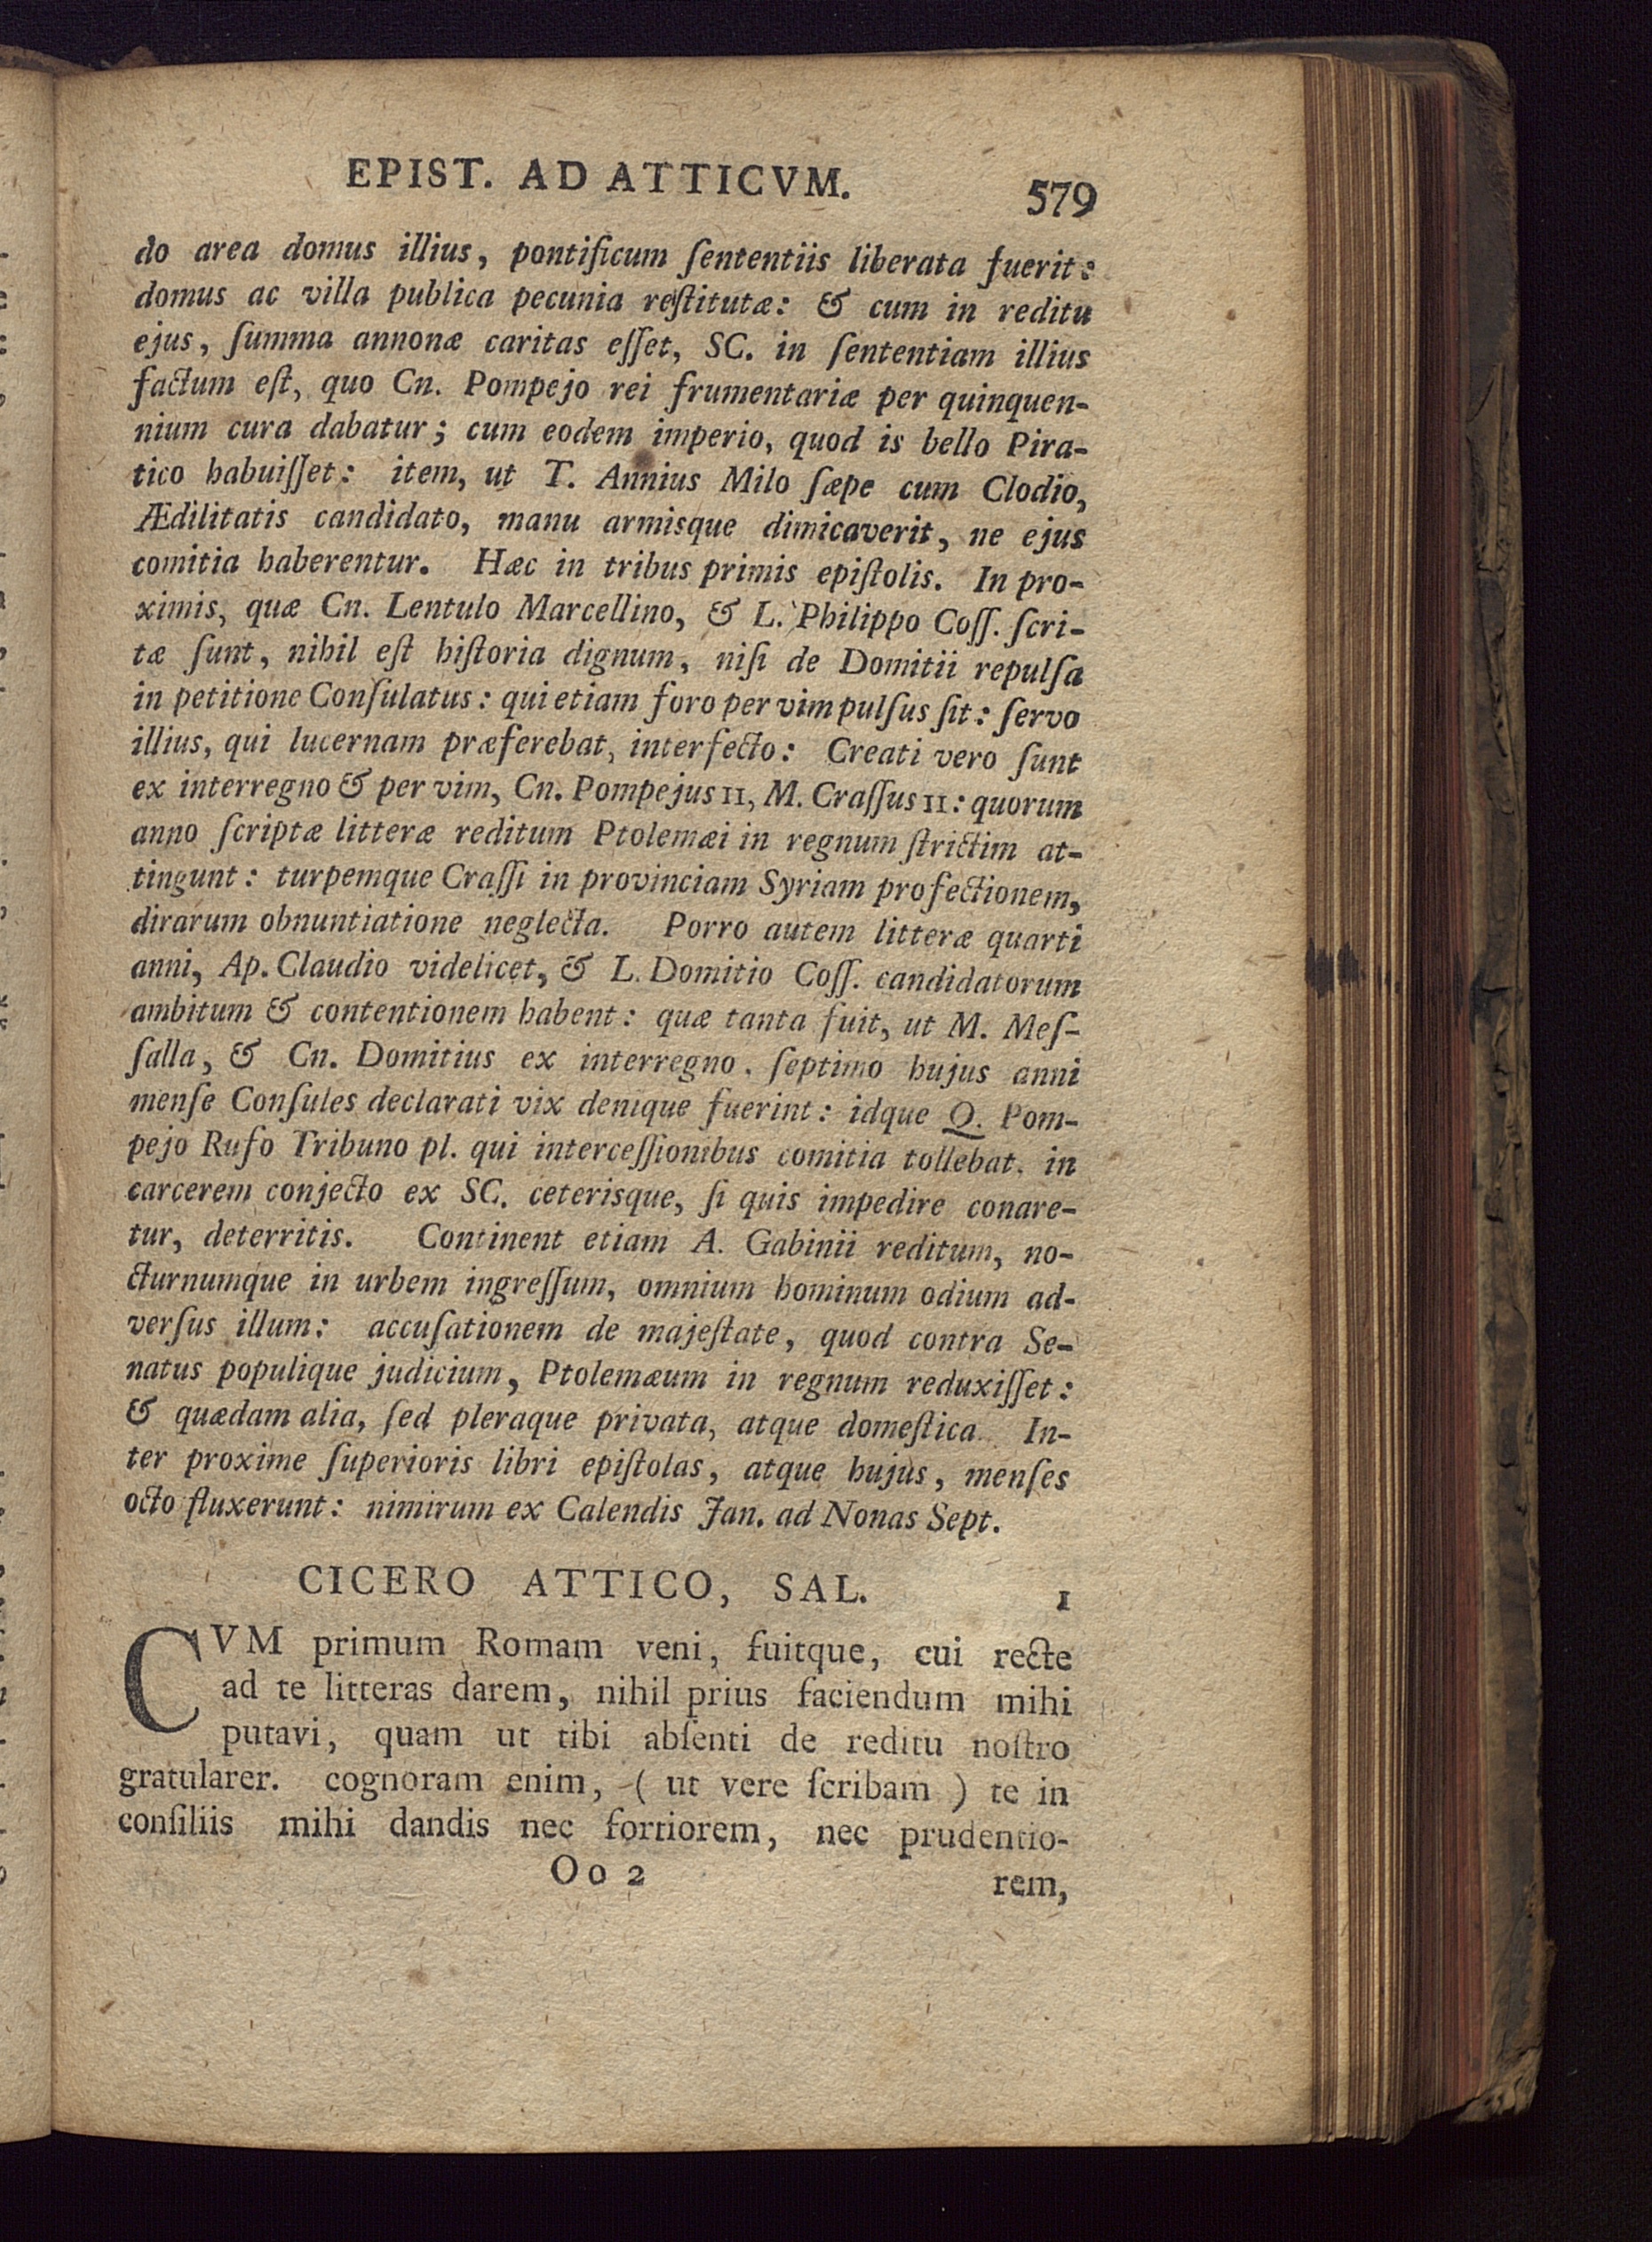 EPIST. AD ATTICVM. 579
do area domus illius, pontificum ſententiis liberata fuerit:
domus ac villa publica pecunia reſtitutæ: & cum in reditu
ejus, ſumma annonæ caritas eſſet, SC. in ſententiam illius
factum eſt, quo Cn. Pompejo rei frumentariæ per quinquen-
nium cura dabatur; cum eodem imperio, quod is bello Pira-
tico habuiſſet: item, ut T. Annius Milo ſæpe cum Clodio,
Ædilitatis candidato, manu armisque dimicaverit, ne ejus
comitia haberentur. Hæc in tribus primis epiſtolis. In pro-
ximis, quæ Cn. Lentulo Marcellino, & L. Philippo Coſſ. ſcri-
tæ ſunt, nihil eſt hiſtoria dignum, niſi de Domitii repulſa
in petitione Conſulatus: qui etiam foro per vim pulſus ſit: ſervo
illius, qui lucernam præferebat, interfecto: Creati vero ſunt
ex interregno & per vim, Cn. Pompejus II, M. Craſſus II: quorum
anno ſcriptæ litteræ reditum Ptolemæi in regnum ſtrictim at-
tingunt: turpemque Craſſi in provinciam Syriam profectionem,
dirarum obnuntiatione neglecta. Porro autem litteræ quarti
anni, Ap. Claudio videlicet, & L. Domitio Coſſ. candidatorum
ambitum & contentionem habent: quæ tanta fuit, ut M. Meſ-
ſalla, & Cn. Domitius ex interregno, ſeptimo hujus anni
menſe Conſules declarati vix denique fuerint: idque Q. Pom-
pejo Rufo Tribuno pl. qui interceſſionibus comitia tollebat, in
carcerem conjecto ex SC. ceterisque, ſi quis impedire conare-
tur, deterritis. Continent etiam A. Gabinii reditum, no-
cturnumque in urbem ingreſſum, omnium hominum odium ad-
verſus illum: accuſationem de majeſtate, quod contra Se-
natus populique judicium, Ptolemæum in regnum reduxiſſet:
& quædam alia, ſed pleraque privata, atque domeſtica. In-
ter proxime ſuperioris libri epiſtolas, atque hujus, menſes
octo fluxerunt: nimirum ex Calendis Jan. ad Nonas Sept.
CICERO ATTICO, SAL. I
CVM primum Romam veni, fuitque, cui recte
ad te litteras darem, nihil prius faciendum mihi
putavi, quam ut tibi abſenti de reditu noſtro
gratularer. cognoram enim, ( ut vere ſcribam ) te in
conſiliis mihi dandis nec fortiorem, nec prudentio-
Oo 2 rem,